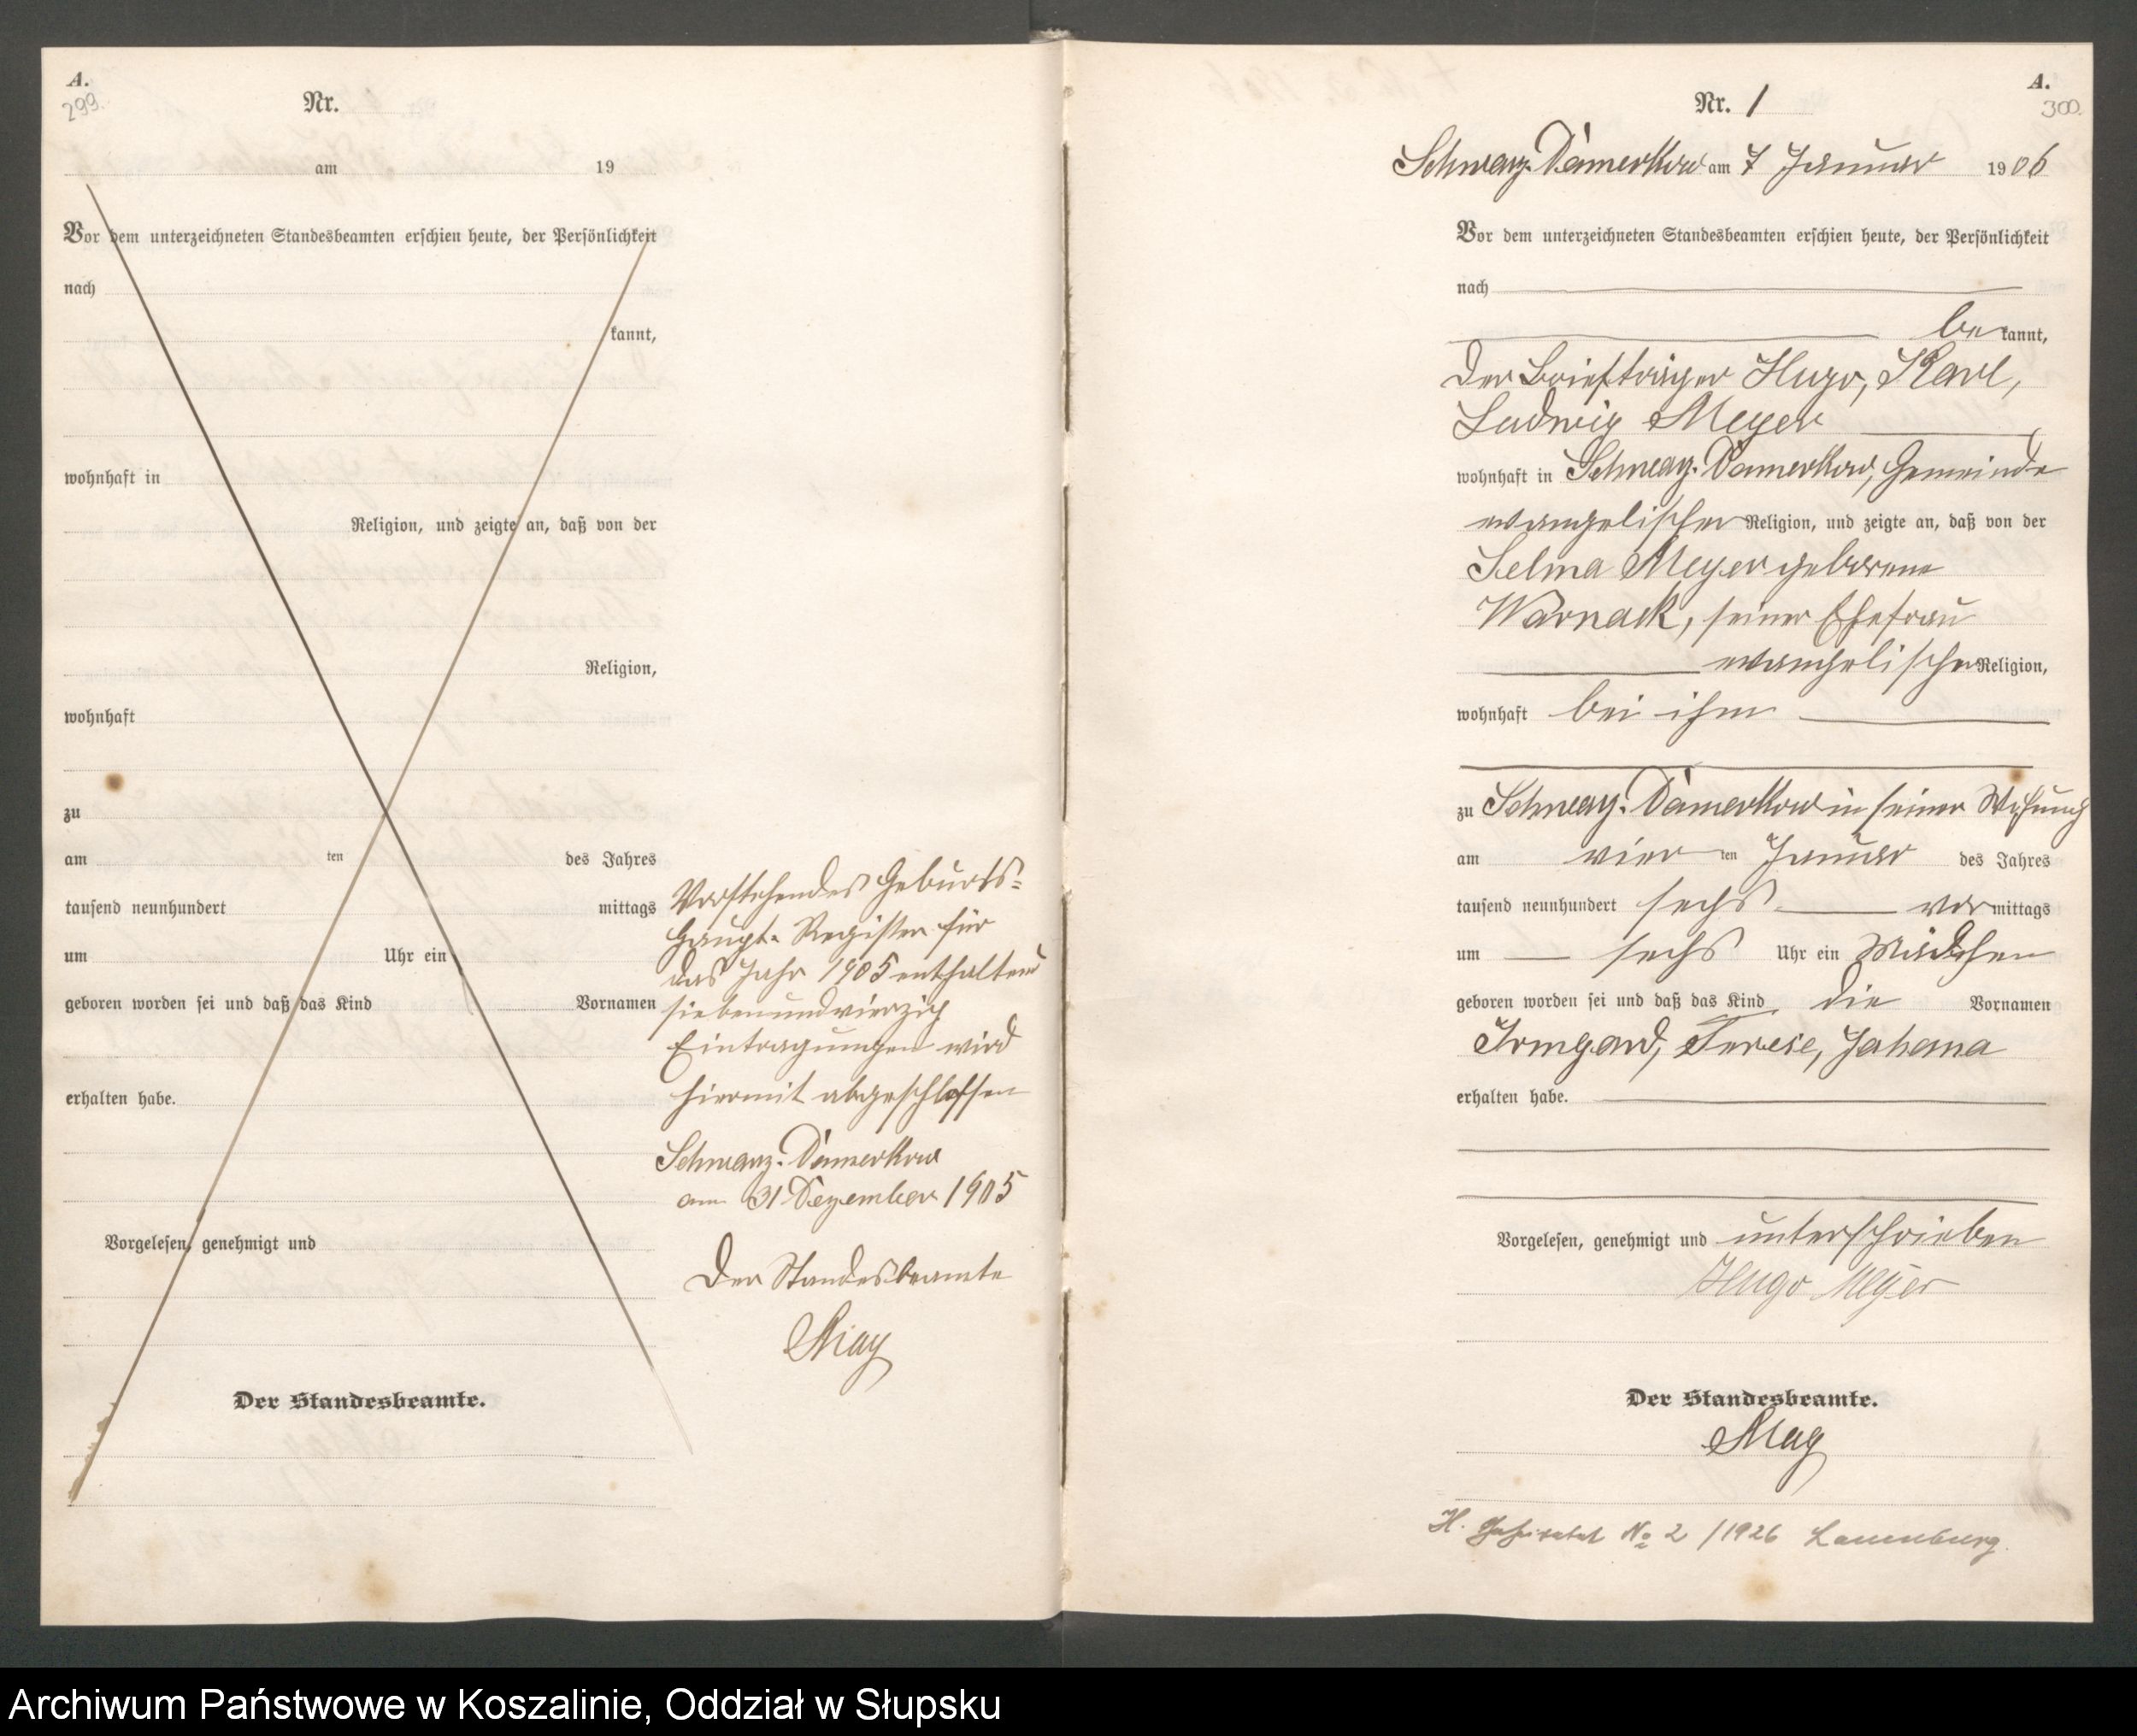 A.
299.
Nr.
am 19
Vor dem unterzeichneten Standesbeamten erschien heute, der Persönlichkeit
nach
kannt,
wohnhaft in
Religion, und zeigte an, daß von der
Religion,
wohnhaft
zu
am ten des Jahres
tausend neunhundert mittags
um Uhr ein
geboren worden sei und daß das Kind Vornamen
erhalten habe.
Vorgelesen, genehmigt und
Der Standesbeamte.
Vorstehendes Geburts-
Haupt-Register für
das Jahr 1905 enthaltend
siebenundvierzig
Eintragungen wird
hiermit abgeschlossen
Schwarz-Damerkow
am 31 Dezember 1905
Der Standesbeamte
May
A.
300.
Nr. 1
Schwarz-Damerkow am 7 Januar 1906
Vor dem unterzeichneten Standesbeamten erschien heute, der Persönlichkeit
nach
bekannt,
der Briefträger Hugo, Karl,
Ludwig Meyer
wohnhaft in Schwarz-Damerkow, Gemeinde
evangelischer Religion, und zeigte an, daß von der
Selma Meyer geborene
Warnack, seiner Ehefrau
evangelischer Religion,
wohnhaft bei ihm
zu Schwarz-Damerkow in seiner Wohnung
am vierten Januar des Jahres
tausend neunhundert sechs vormittags
um sechs Uhr ein Mädchen
geboren worden sei und daß das Kind die Vornamen
Irmgard, Terese, Johana
erhalten habe.
Vorgelesen, genehmigt und unterschrieben
Hugo Meyer
Der Standesbeamte.
May
H. № 2/1926 Lauenburg.
Archiwum Państwowe w Koszalinie, Oddział w Słupsku